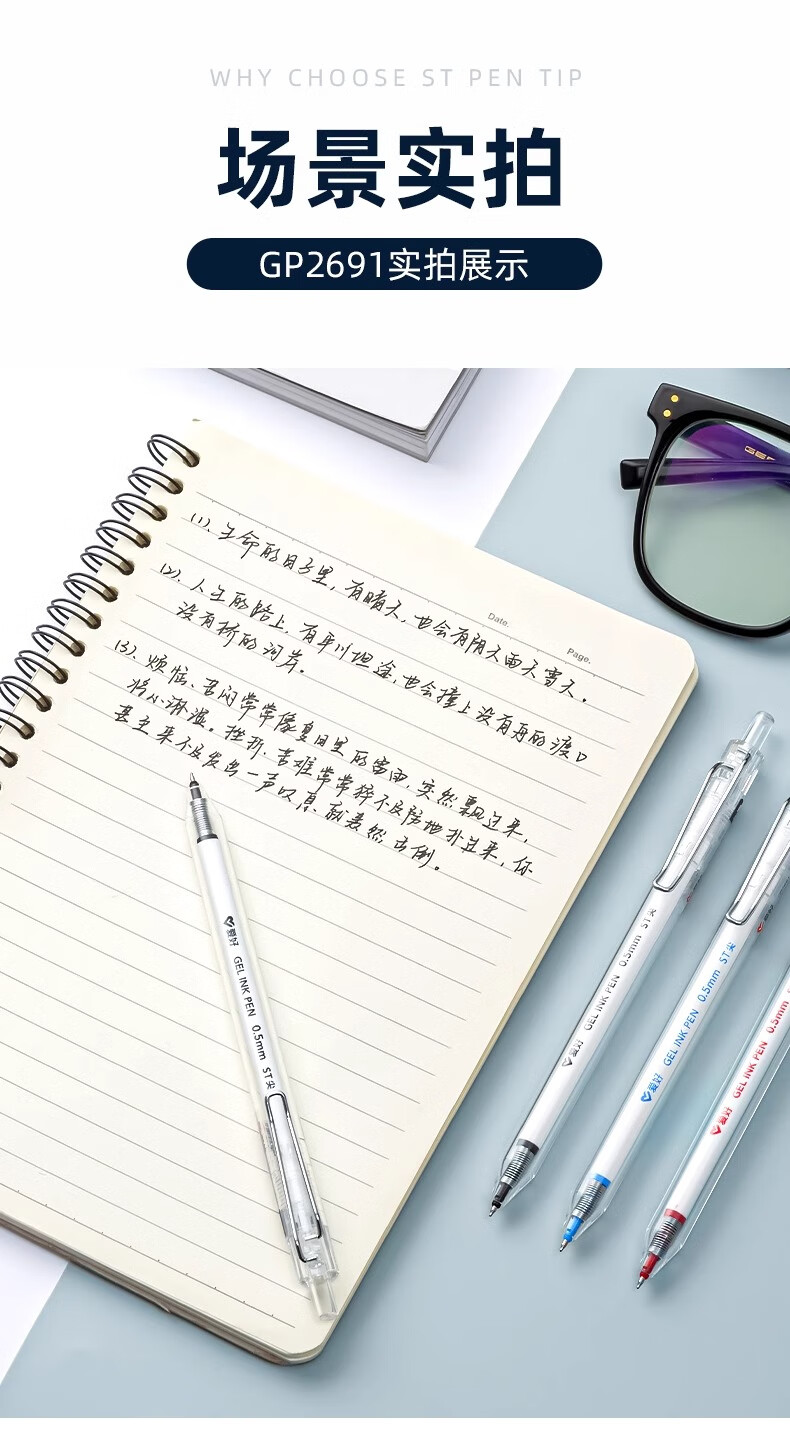 WHY CHOOSE ST PEN TIP
场景实拍
GP2691实拍展示
Date.
Page.
(1)、生命的日子里,有晴天,也会有阴天雨天雪天。
(2)、人生的路上,有平川坦途,也会撞上没有舟的渡口
没有桥的河岸。
(3)、烦恼、苦闷常常像夏日里的雷雨,突然飘过来,
将心淋湿。挫折、苦难常常猝不及防地扑过来,你
甚至来不及发出一声叹息就轰然击倒。
爱好 GEL INK PEN 0.5mm ST尖
爱好 GEL INK PEN 0.5mm ST尖
爱好 GEL INK PEN 0.5mm ST尖
爱好 GEL INK PEN 0.5mm